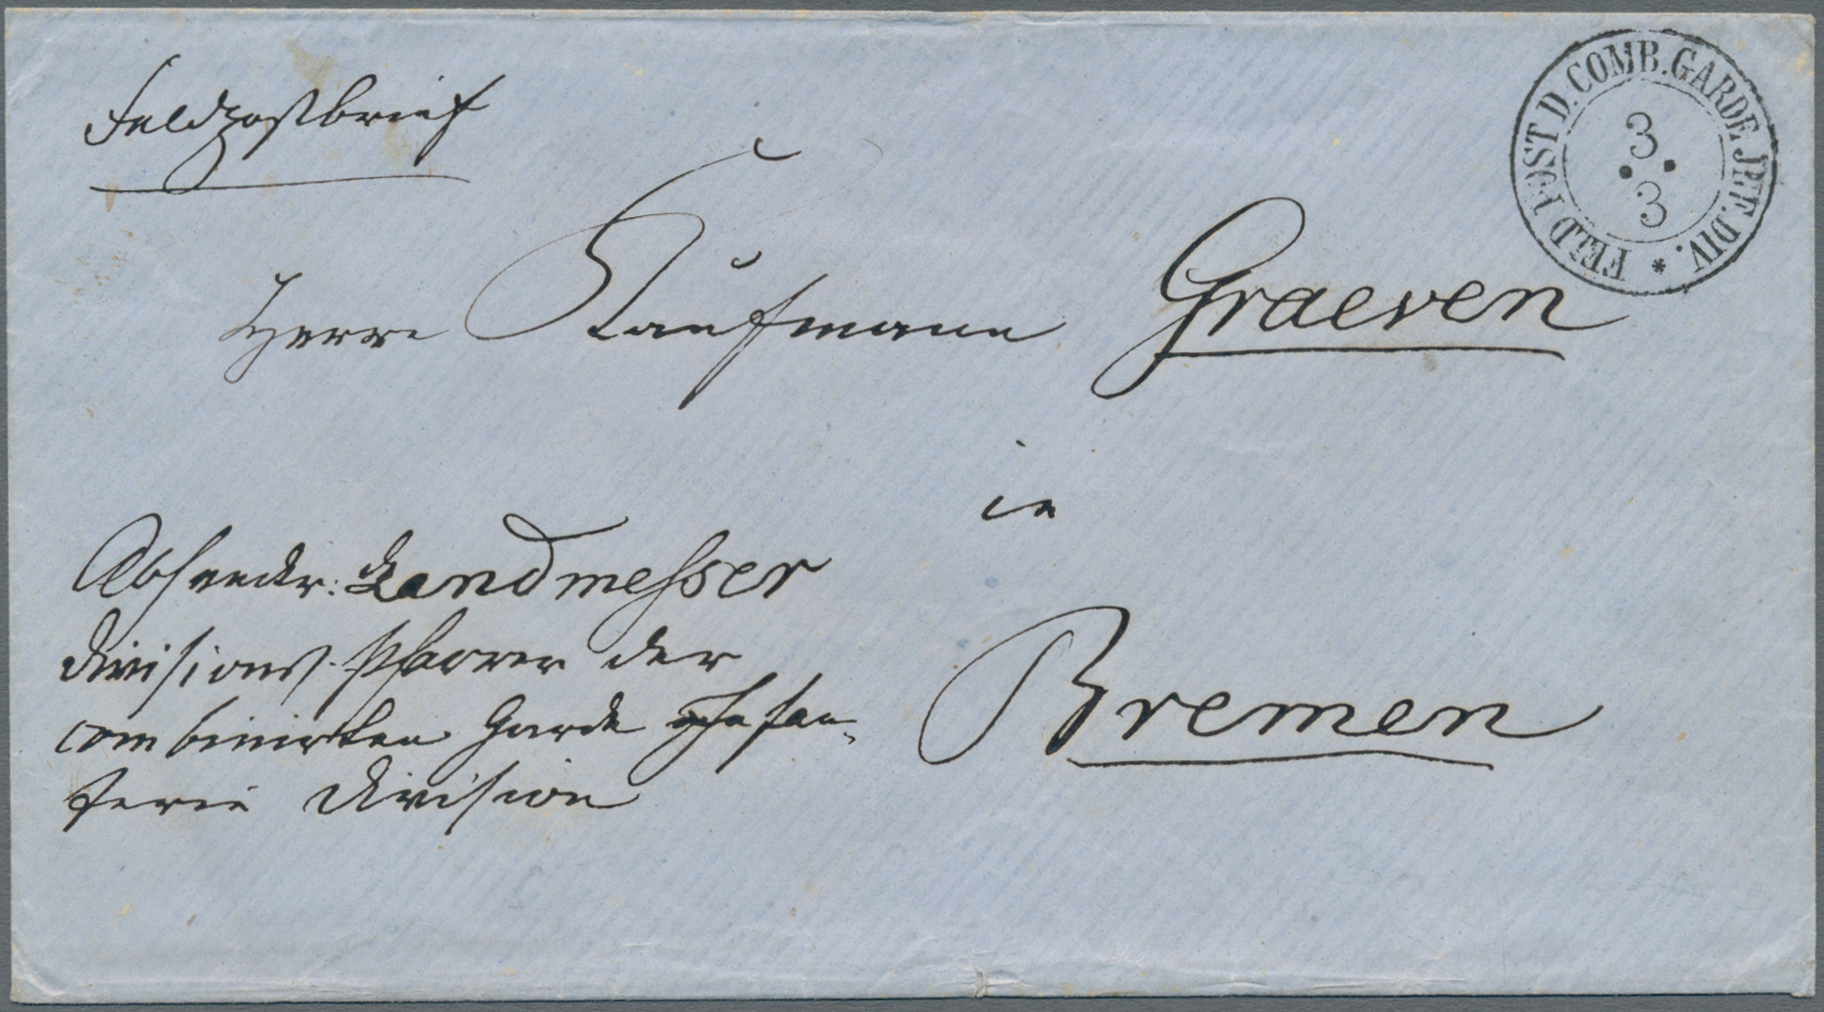 Feldpostbrief
FELD POST D. COMB. GARDE JNF. DIV. *
3
3
Herrn Kaufmann Graeven
in
Bremen
Absender: Landmesser
Divisions-Pfarrer der
combinirten Garde Infan-
terie Division